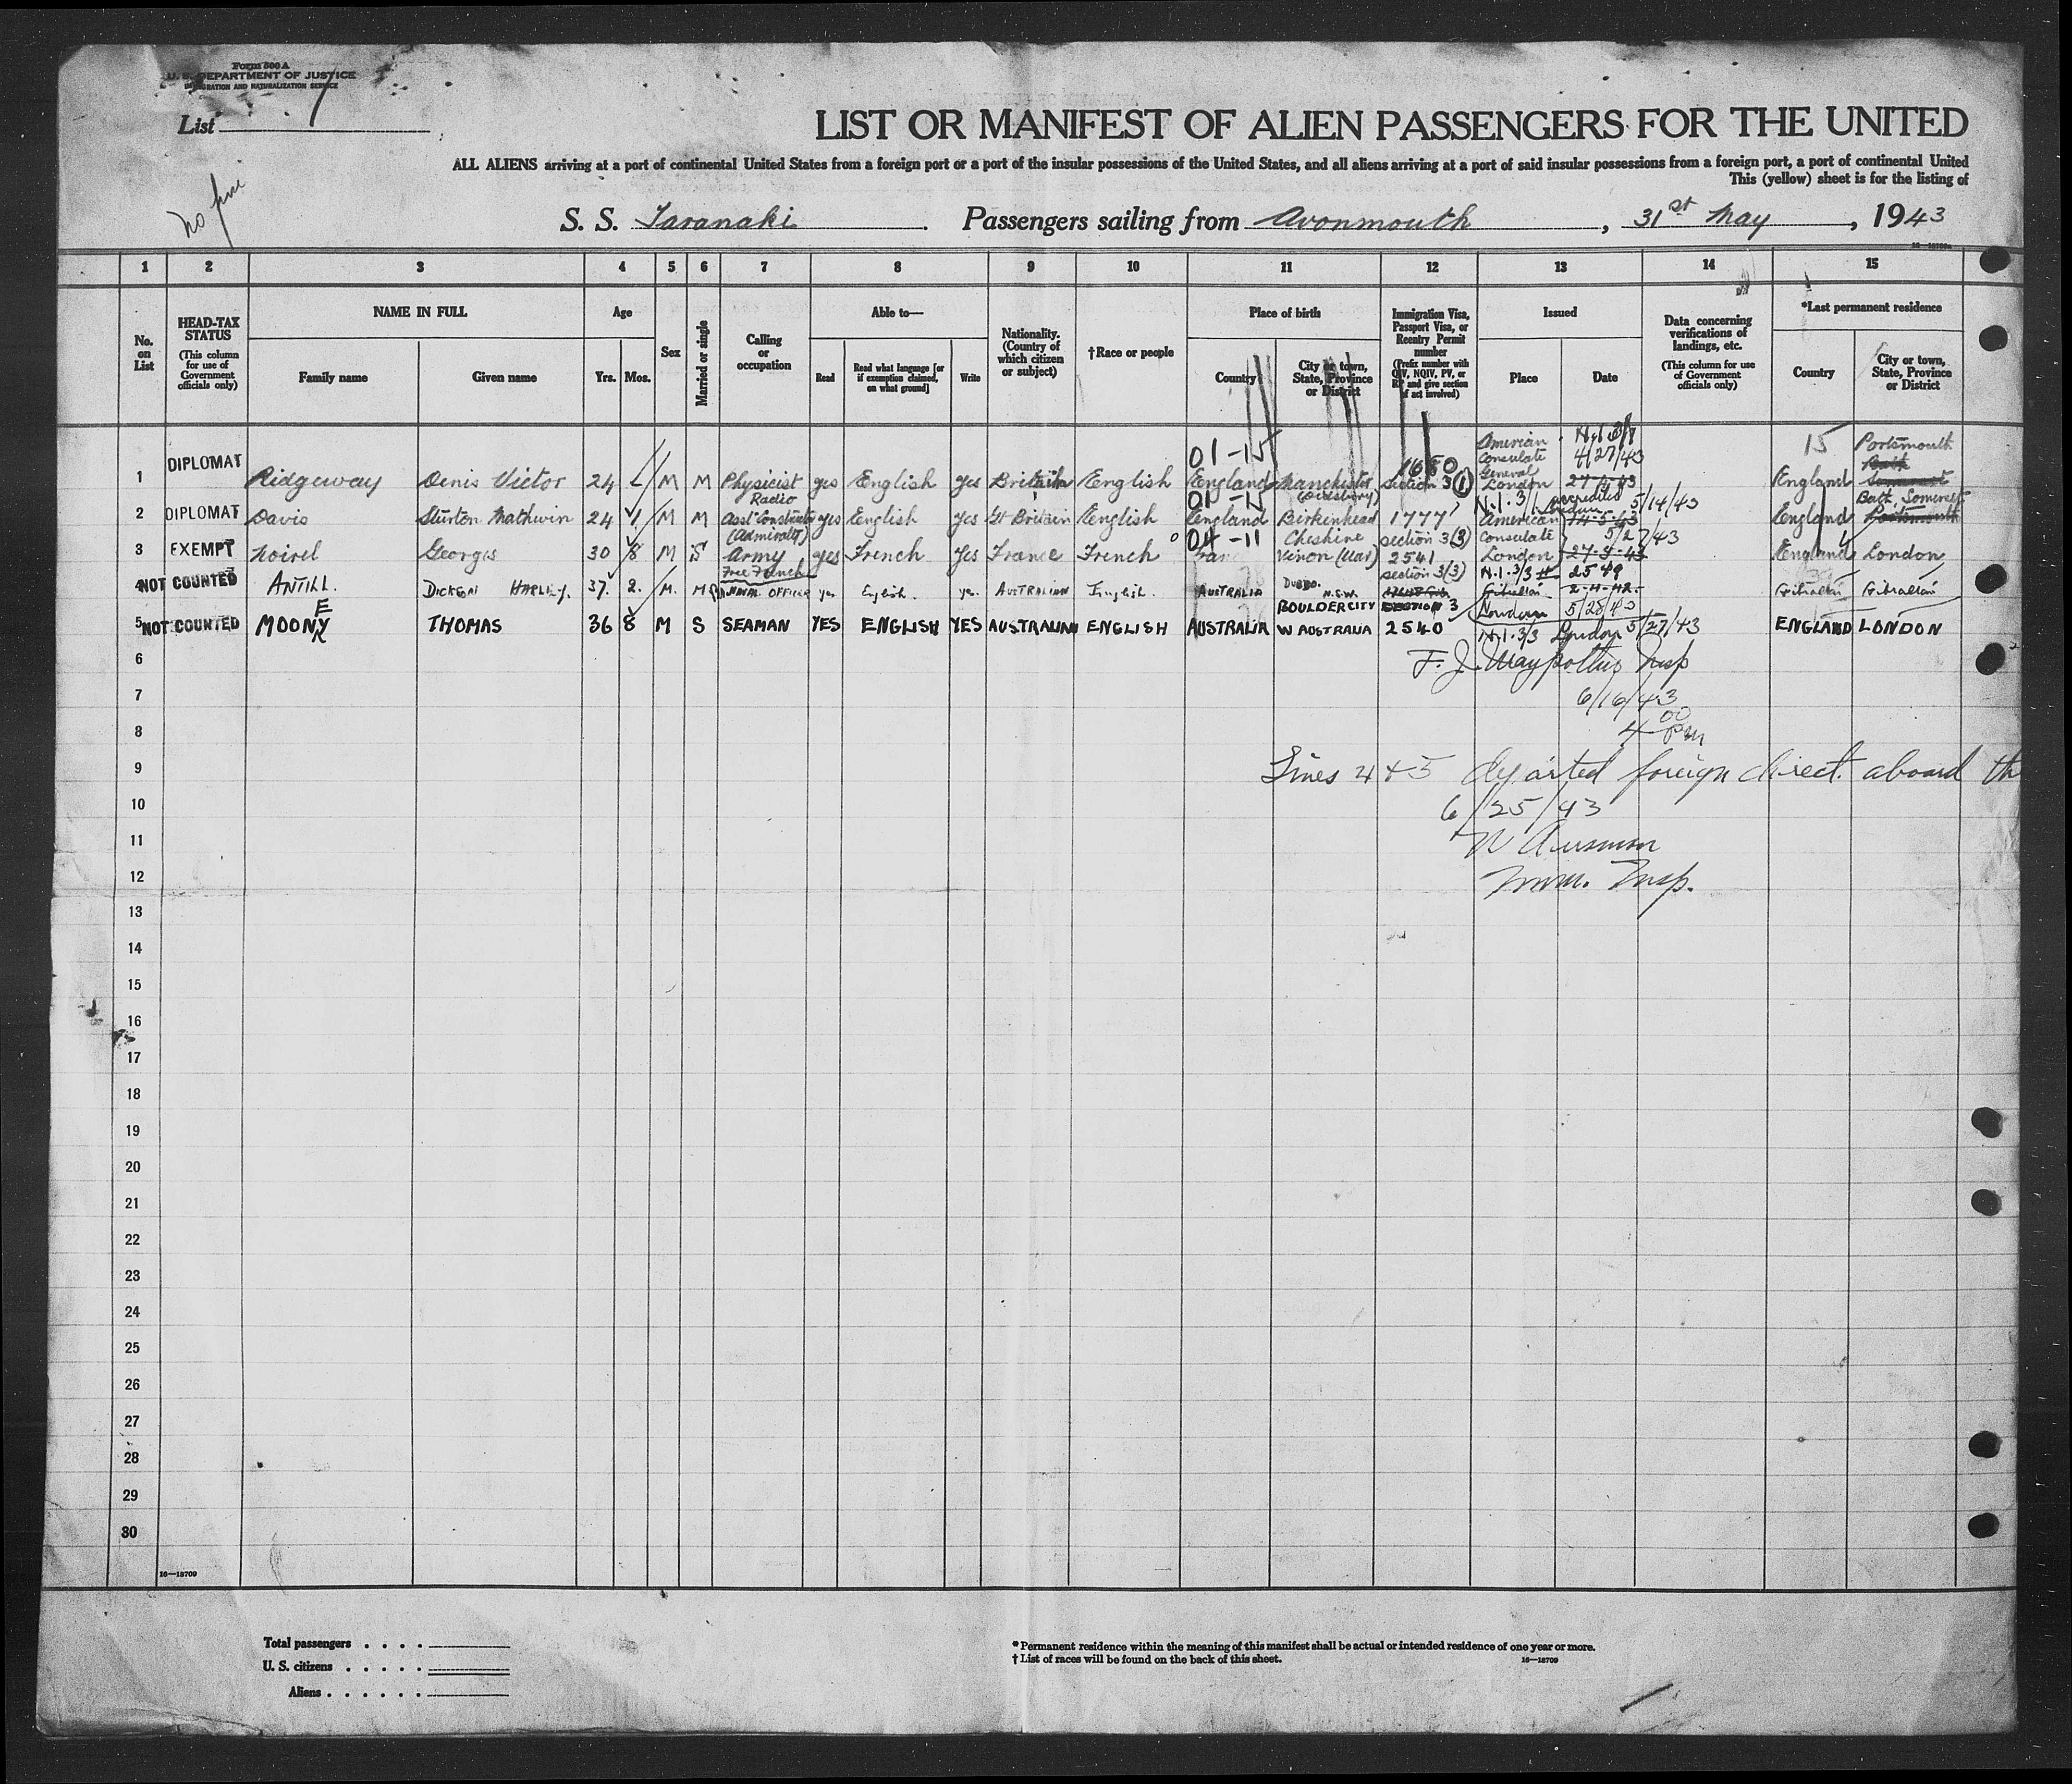 Form 500 A
U. S. DEPARTMENT OF JUSTICE
IMMIGRATION AND NATURALIZATION SERVICE
List 1
No fine
LIST OR MANIFEST OF ALIEN PASSENGERS FOR THE UNITED
ALL ALIENS arriving at a port of continental United States from a foreign port or a port of the insular possessions of the United States, and all aliens arriving at a port of said insular possessions from a foreign port, a port of continental United
This (yellow) sheet is for the listing of
S. S. Taranaki. Passengers sailing from Avonmouth, 31st May, 1943
1 2 3 4 5 6 7 8 9 10 11 12 13 14 15
No. on List
HEAD-TAX STATUS
(This column for use of Government officials only)
NAME IN FULL
Family name Given name
Age
Yrs. Mos.
Sex
Married or single
Calling or occupation
Able to—
Read Read what language [or if exemption claimed, on what ground] Write
Nationality. (Country of which citizen or subject)
†Race or people
Place of birth
Country City or town, State, Province or District
Immigration Visa, Passport Visa, or Reentry Permit number
(Prefix number with QIV, NQIV, PV, or RP and give section of act involved)
Issued
Place Date
Data concerning verifications of landings, etc.
(This column for use of Government officials only)
*Last permanent residence
Country City or town, State, Province or District
1 DIPLOMAT Ridgeway Denis Victor 24 M M Physicist Radio yes English yes British English 01-15 England Manchester (Didsbury) 1680 Section 3(1) American Consulate General London 4/27/43 27-4-43 15 England Portsmouth Bath Somerset
2 DIPLOMAT Davis Sturton Mathwin 24 1 M M Asst Constructor (Admiralty) yes English yes Gt Britain English 01-15 England Birkenhead Cheshire 1777 section 3(3) N.I.3/1 accredited London 5/14/43 American Consulate London 14-5-43 England Bath Somerset Portsmouth
3 EXEMPT Noirel Georges 30 8 M S Army Free French yes French yes France French 04-11 Vinon (Var) 2541 section 3(3) 5/27/43 27-5-43 England London
4 NOT COUNTED ANTILL. DICKSON HARLEY. 37. 2. M. M NAVAL OFFICER yes English. yes. AUSTRALIAN English. AUSTRALIA DUBBO. N.S.W. SECTION 3 N.I.3/3 2549 Gibraltar 2-4-42. London 5/28/43 Gibraltar Gibraltar
5 NOT COUNTED MOONEY THOMAS 36 8 M S SEAMAN YES ENGLISH YES AUSTRALIAN ENGLISH AUSTRALIA BOULDER CITY W AUSTRALIA 2540 N.I.3/3 London 5/27/43 ENGLAND LONDON
6
F. J. Insp
7
6/16/43
8
4 00 pm
9 Lines 4 + 5 departed foreign direct aboard th
10 6/25/43
11
12 Imm. Insp.
13
14
15
16
17
18
19
20
21
22
23
24
25
26
27
28
29
30
16—18709
Total passengers . . . .
U. S. citizens . . . . .
Aliens . . . . . .
*Permanent residence within the meaning of this manifest shall be actual or intended residence of one year or more.
†List of races will be found on the back of this sheet.
16—18709